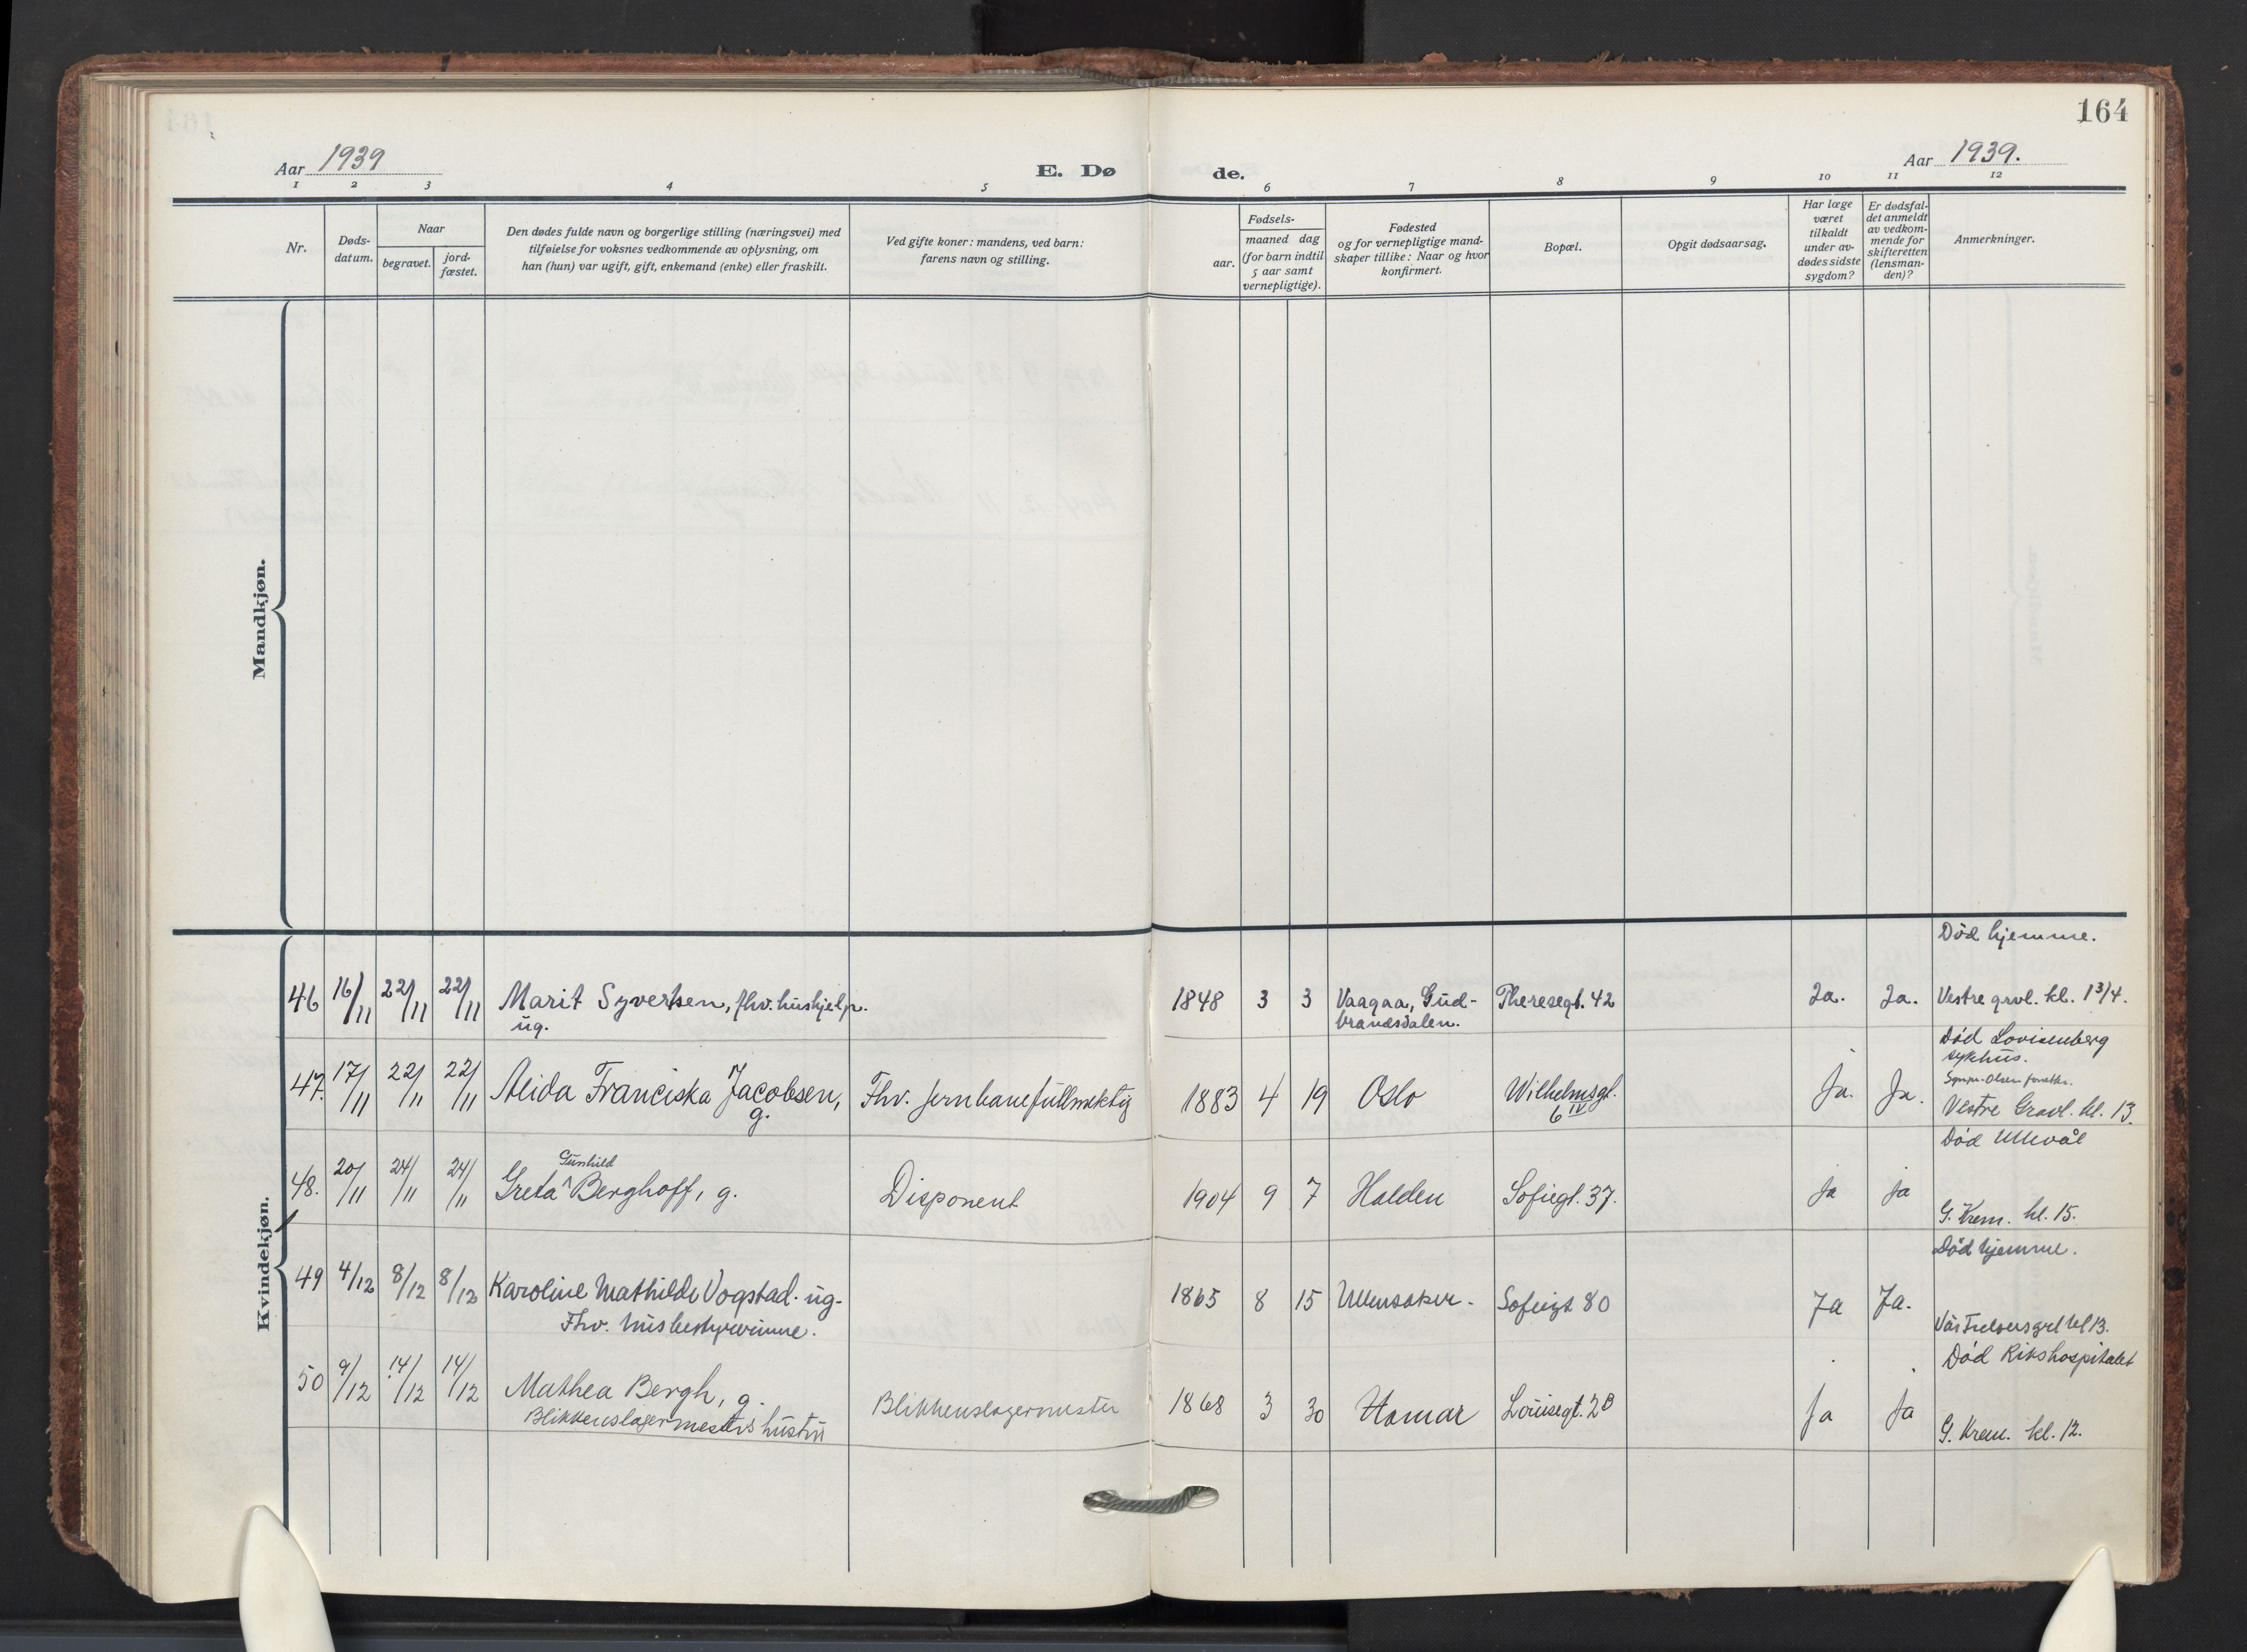 164
Aar 1939
E. Dø de.
Aar 1939.
1 2 3 4 5 6 7 8 9 10 11 12
Nr.
Døds-
datum.
Naar
begravet.
jord-
fæstet.
Den dødes fulde navn og borgerlige stilling (næringsvei) med
tilføielse for voksnes vedkommende av oplysning, om
han (hun) var ugift, gift, enkemand (enke) eller fraskilt.
Ved gifte koner: mandens, ved barn:
farens navn og stilling.
Fødsels-
aar.
maaned dag
(for barn indtil
5 aar samt
vernepligtige).
Fødested
og for vernepligtige mand-
skaper tillike: Naar og hvor
konfirmert.
Bopæl.
Opgit dødsaarsag.
Har læge
været
tilkaldt
under av-
dødes sidste
sygdom?
Er dødsfal-
det anmeldt
av vedkom-
mende for
skifteretten
(lensman-
den)?
Anmerkninger.
Mandkjøn.
Kvindekjøn.
Død hjemme.
46 16/11 22/11 22/11 Marit Syvertsen, fhv. hushjelp. 1848 3 3 Vaagaa, Gud- Theresegt. 42 Ja. Ja. Vestre gravl. kl. 1 3/4.
ug. brandsdalen.
Død Lovisenberg
sykhus.
47. 17/11 22/11 22/11 Alida Franciska Jacobsen, Fhv. jernbanefullmektig 1883 4 19 Oslo Wilhelmsgt. Ja. Ja.
g. 6 IV Vestre Gravl. kl. 13.
Død Ullevål
Gunhild
48. 20/11 24/11 24/11 Greta ^ Berghoff, g. Disponent 1904 9 7 Halden Sofiegt. 37. Ja Ja
G. Krem. kl. 15.
Død hjemme.
49 4/12 8/12 8/12 Karoline Mathilde Vogstad. ug. 1865 8 15 Ullensaker. Sofiegt 80 Ja Ja.
Fhv. husbestyrerinne. Vår Frelsers grl kl 13.
Død Rikshospitalet
50 9/12 14/12 14/12 Mathea Bergh, g. Blikkenslagermester 1868 3 30 Hamar Louisegt. 2B Ja Ja
Blikkenslagermesters hustru G. Krem. kl. 12.